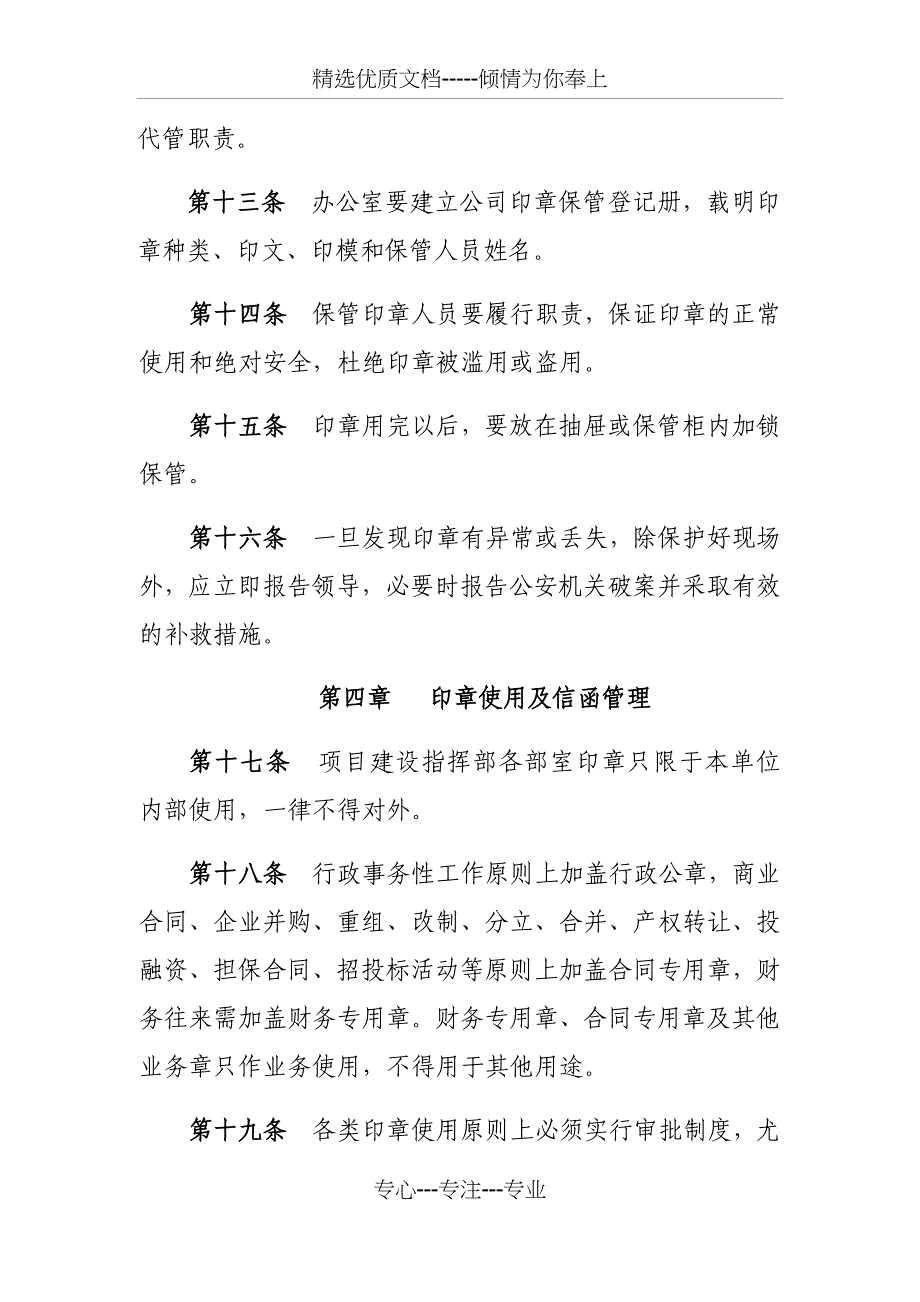 精选优质文档-----倾情为你奉上
代管职责。
第十三条 办公室要建立公司印章保管登记册，载明印
章种类、印文、印模和保管人员姓名。
第十四条 保管印章人员要履行职责，保证印章的正常
使用和绝对安全，杜绝印章被滥用或盗用。
第十五条 印章用完以后，要放在抽屉或保管柜内加锁
保管。
第十六条 一旦发现印章有异常或丢失，除保护好现场
外，应立即报告领导，必要时报告公安机关破案并采取有效
的补救措施。
第四章 印章使用及信函管理
第十七条 项目建设指挥部各部室印章只限于本单位
内部使用，一律不得对外。
第十八条 行政事务性工作原则上加盖行政公章，商业
合同、企业并购、重组、改制、分立、合并、产权转让、投
融资、担保合同、招投标活动等原则上加盖合同专用章，财
务往来需加盖财务专用章。财务专用章、合同专用章及其他
业务章只作业务使用，不得用于其他用途。
第十九条 各类印章使用原则上必须实行审批制度，尤
专心---专注---专业